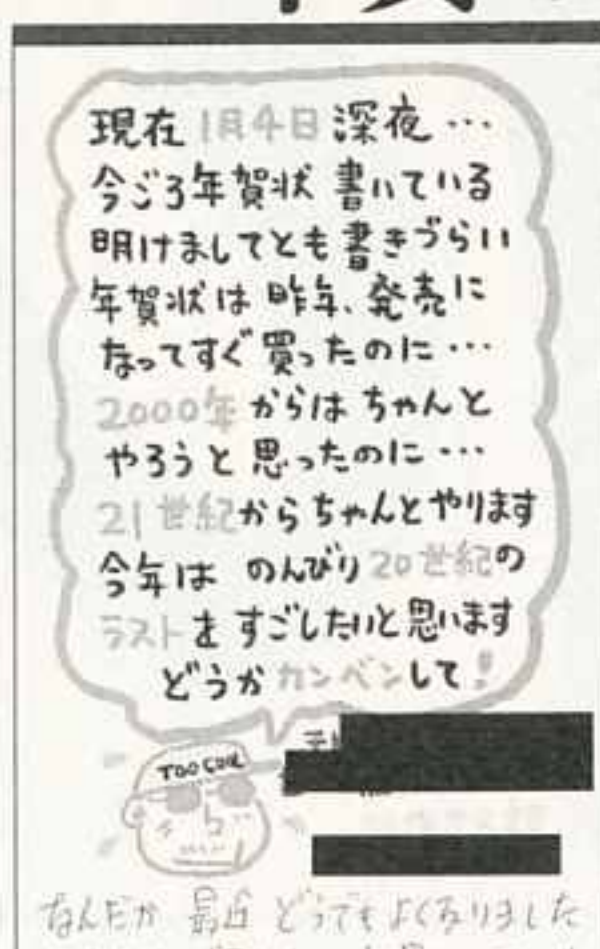 現在1月4日深夜…
今ごろ年賀状 書いている
明けましてとも書きづらい
年賀状は 昨年、発売に
なってすぐ買ったのに…
2000年からはちゃんと
やろうと思ったのに…
21世紀からちゃんとやります
今年は のんびり20世紀の
ラストをすごしたいと思います
どうかカンベンして!
TOO COOL
なんだか 最近 どうでもよくなりました